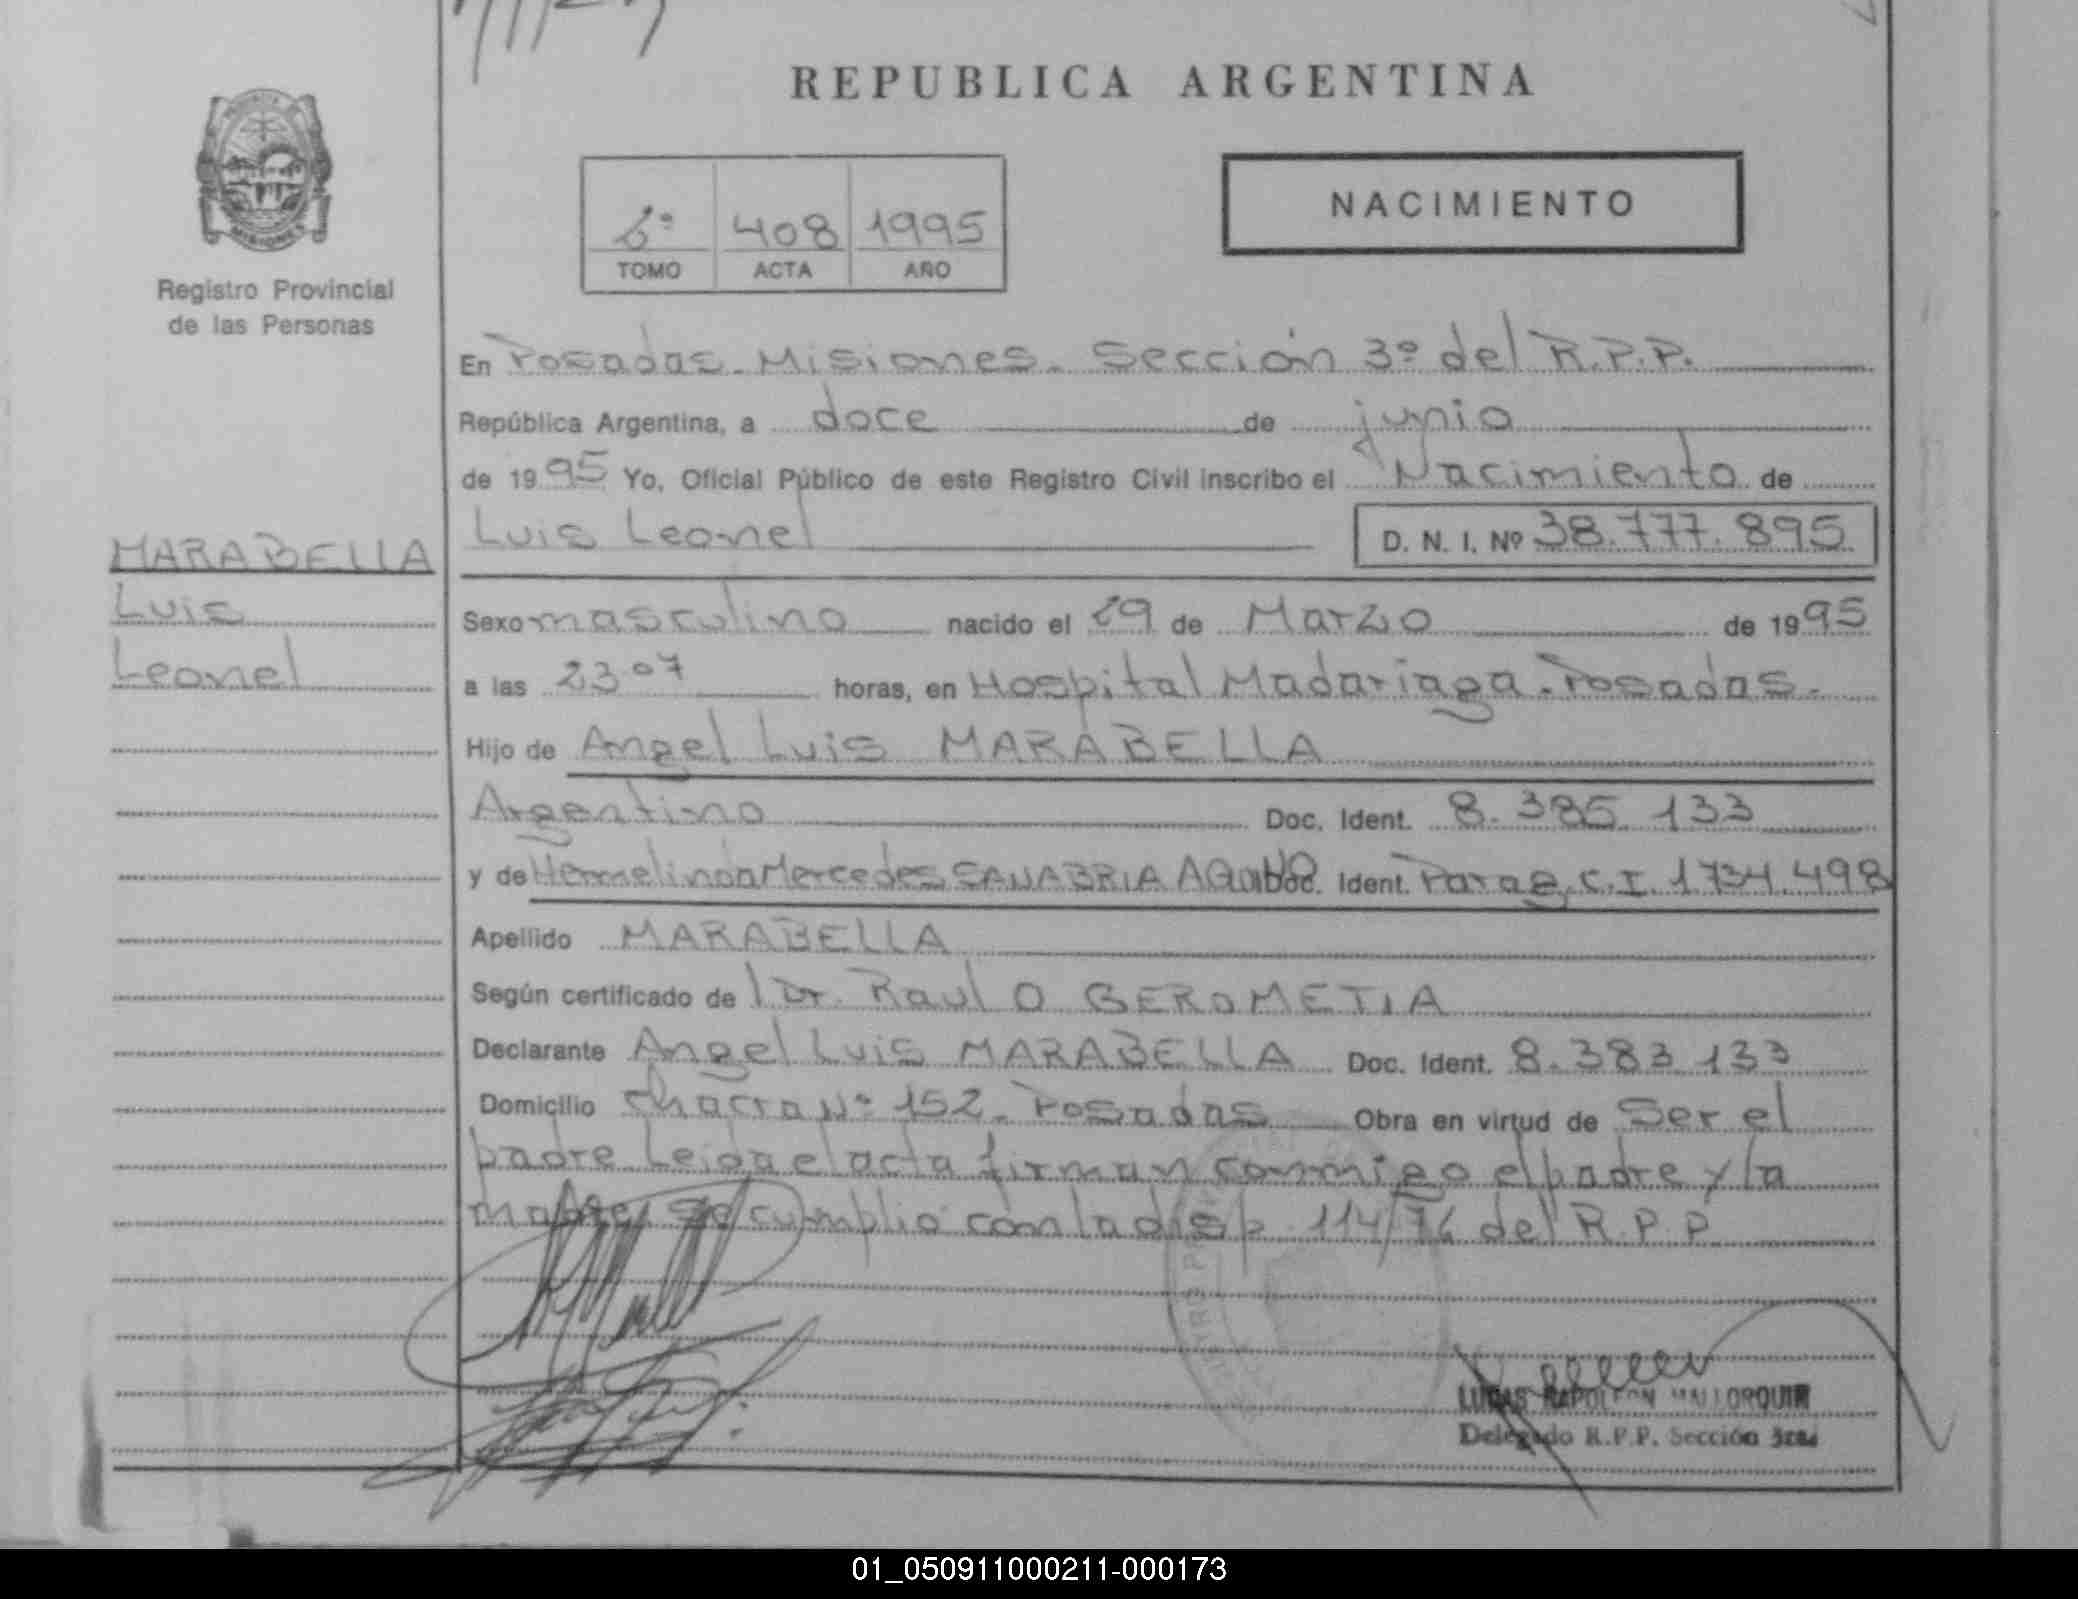 REPUBLICA ARGENTINA
MISIONES
Registro Provincial
de las Personas
6º 408 1995
TOMO ACTA AÑO
NACIMIENTO
En Posadas - Misiones - Sección 3º del R.P.P.
República Argentina, a doce de junio
de 1995 Yo, Oficial Público de este Registro Civil inscribo el Nacimiento de
Luis Leonel D. N. I. Nº 38.777.895
MARABELLA
Luis
Leonel
Sexo masculino nacido el 29 de Marzo de 1995
a las 23 07 horas, en Hospital Madariaga - Posadas -
Hijo de Angel Luis MARABELLA
Argentino Doc. Ident. 8.385.133
y de Hermelinda Mercedes SANABRIA Doc. Ident. Parag. C.I. 1734.498
Apellido MARABELLA
Según certificado de l Dr. Raul O GEROMETTA
Declarante Angel Luis MARABELLA Doc. Ident. 8.383.133
Domicilio Chacra Nº 152 - Posadas Obra en virtud de Ser el
padre Leida el acta firman conmigo el padre y la
madre, se cumplio con la disp. 114/76 del R.P.P
LUCAS NAPOLEON MALLORQUIN
Delegado R.P.P. Sección 3ra
01_050911000211-000173